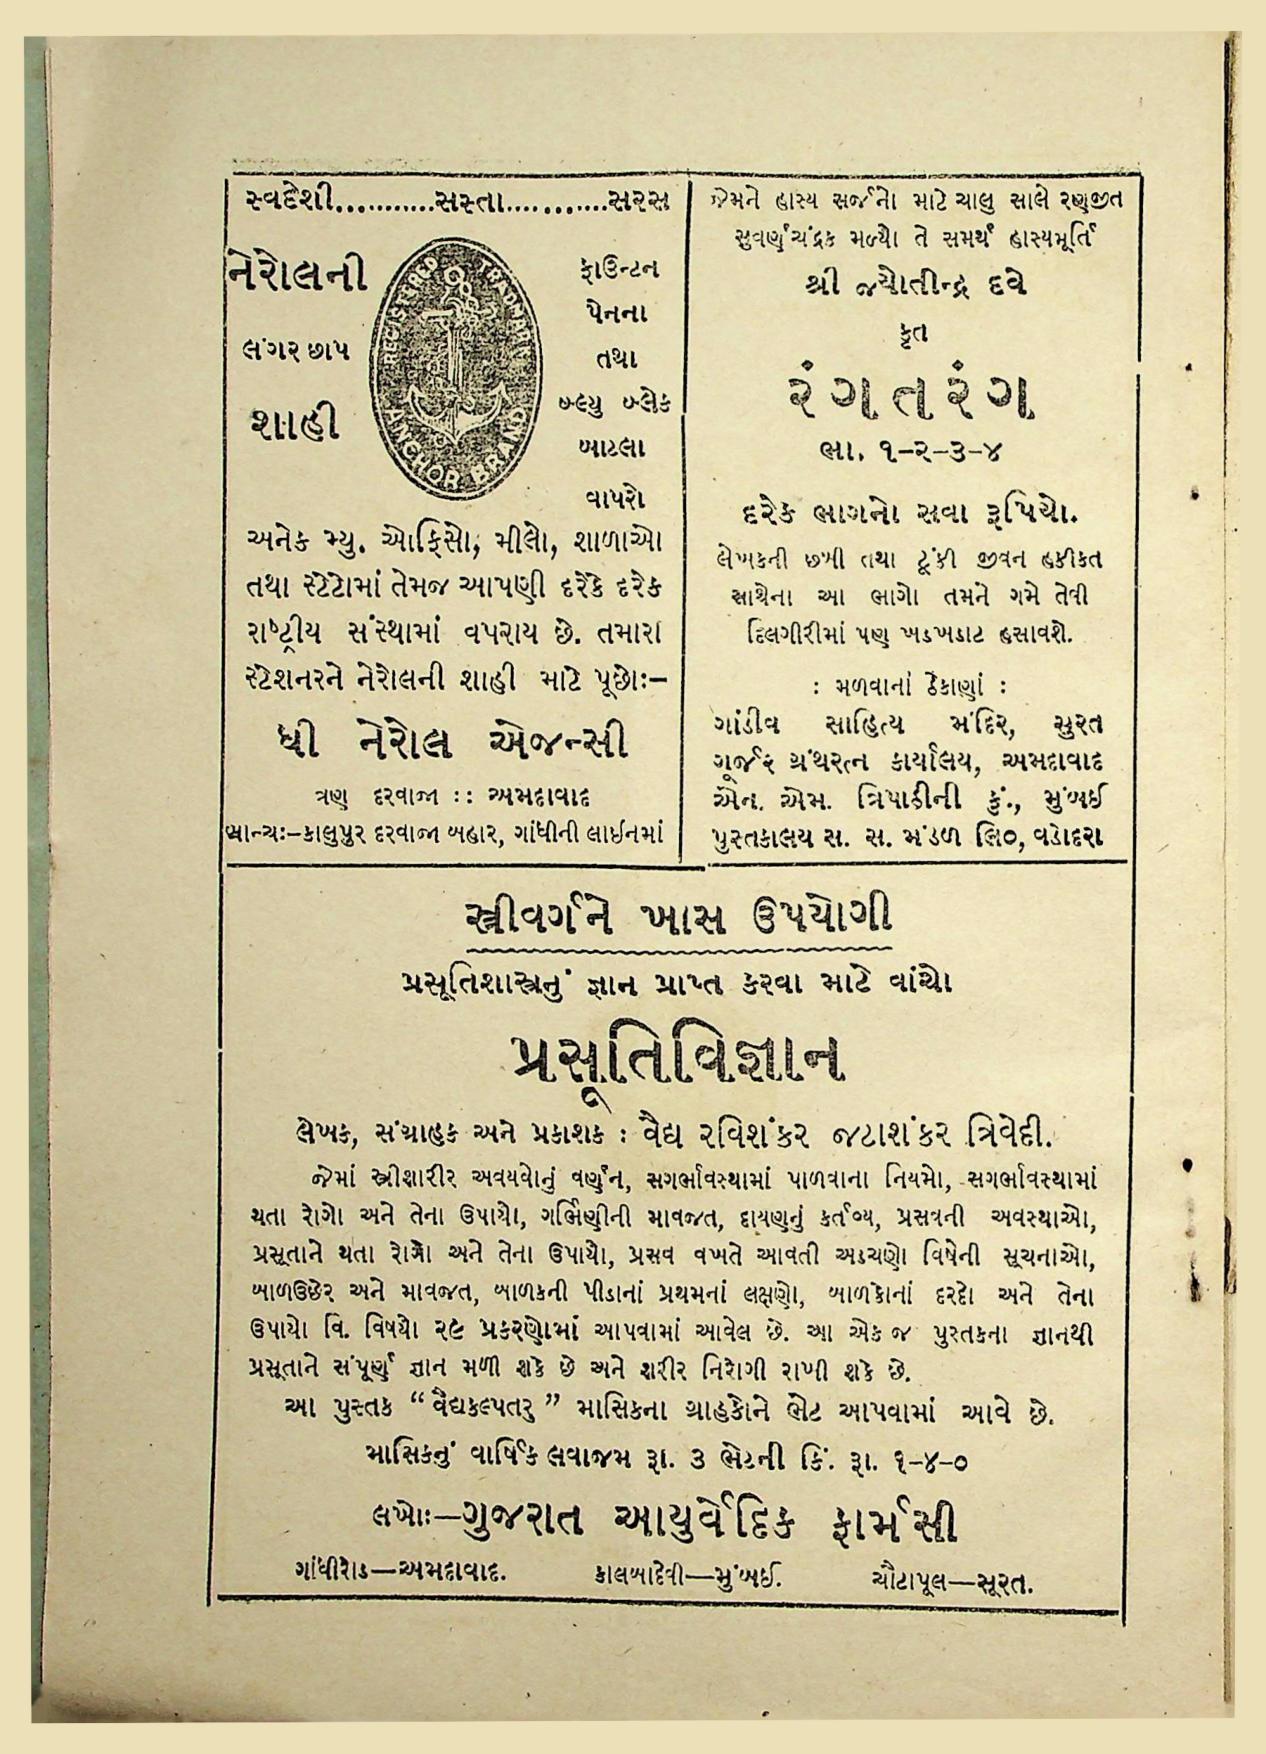 સ્વદેશી...........સસ્તા...........સરસ
નેરોલની
લંગર છાપ
શાહી
REGISTERED TRADMARK
ANCHOR BRAND
ફાઉન્ટન
પેનના
તથા
બ્લ્યુ બ્લેક
બાટલા
વાપરો
અનેક મ્યુ. ઓફિસો, મીલો, શાળાઓ
તથા સ્ટેટોમાં તેમજ આપણી દરેકે દરેક
રાષ્ટ્રીય સંસ્થામાં વપરાય છે. તમારા
સ્ટેશનરને નેરોલની શાહી માટે પૂછોઃ–
ધી નેરોલ એજન્સી
ત્રણ દરવાજા :: અમદાવાદ
બ્રાન્ચઃ–કાલુપુર દરવાજા બહાર, ગાંધીની લાઈનમાં
જેમને હાસ્ય સર્જનો માટે ચાલુ સાલે રણજીત
સુવર્ણચંદ્રક મળ્યો તે સમર્થ હાસ્યમૂર્તિ
શ્રી જ્યોતીન્દ્ર દવે
કૃત
રંગતરંગ
ભા. ૧–૨–૩–૪
દરેક ભાગનો સવા રૂપિયો.
લેખકની છબી તથા ટૂંકી જીવન હકીકત
સાથેના આ ભાગો તમને ગમે તેવી
દિલગીરીમાં પણ ખડખડાટ હસાવશે.
: મળવાનાં ઠેકાણાં :
ગાંડીવ સાહિત્ય મંદિર, સુરત
ગૂર્જર ગ્રંથરત્ન કાર્યાલય, અમદાવાદ
એન. એમ. ત્રિપાઠીની કું., મુંબઈ
પુસ્તકાલય સ. સ. મંડળ લિ૦, વડોદરા
સ્ત્રીવર્ગને ખાસ ઉપયોગી
પ્રસૂતિશાસ્ત્રનું જ્ઞાન પ્રાપ્ત કરવા માટે વાંચો
પ્રસૂતિવિજ્ઞાન
લેખક, સંગ્રાહક અને પ્રકાશક : વૈદ્ય રવિશંકર જટાશંકર ત્રિવેદી.
જેમાં સ્ત્રીશારીર અવયવોનું વર્ણન, સગર્ભાવસ્થામાં પાળવાના નિયમો, સગર્ભાવસ્થામાં
થતા રોગો અને તેના ઉપાયો, ગર્ભિણીની માવજત, દાયણનું કર્તવ્ય, પ્રસવની અવસ્થાઓ,
પ્રસૂતાને થતા રોગો અને તેના ઉપાયો, પ્રસવ વખતે આવતી અડચણો વિષેની સૂચનાઓ,
બાળઉછેર અને માવજત, બાળકની પીડાનાં પ્રથમનાં લક્ષણો, બાળકોનાં દરદો અને તેના
ઉપાયો વિ. વિષયો ૨૯ પ્રકરણોમાં આપવામાં આવેલ છે. આ એક જ પુસ્તકના જ્ઞાનથી
પ્રસૂતાને સંપૂર્ણ જ્ઞાન મળી શકે છે અને શરીર નિરોગી રાખી શકે છે.
આ પુસ્તક “વૈદ્યકલ્પતરુ” માસિકના ગ્રાહકોને ભેટ આપવામાં આવે છે.
માસિકનું વાર્ષિક લવાજમ રૂા. ૩ ભેટની કિં. રૂા. ૧–૪–૦
લખોઃ–ગુજરાત આયુર્વેદિક ફાર્મસી
ગાંધીરોડ—અમદાવાદ. કાલબાદેવી—મુંબઈ. ચૌટાપૂલ—સૂરત.